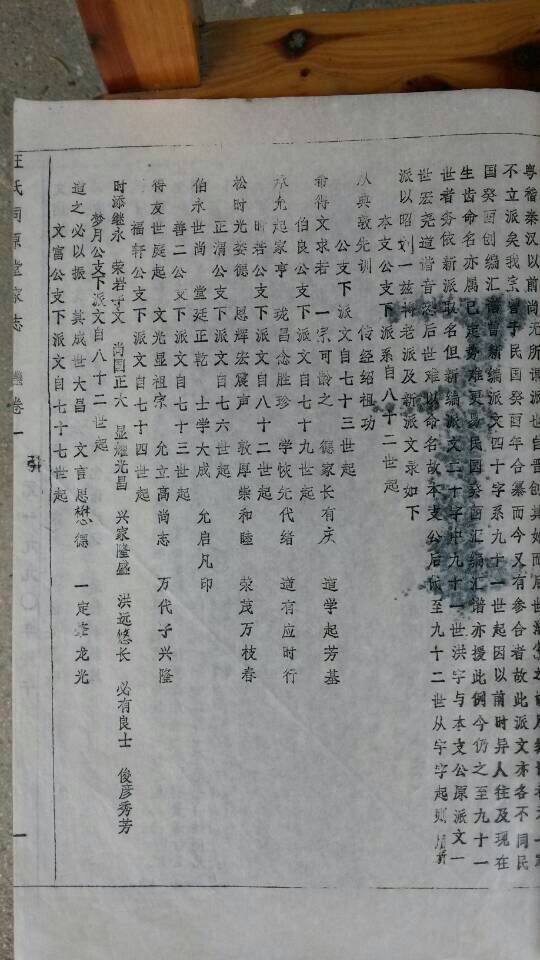 粤稽秦汉以前尚无所谓派也自晋创其始而后世
不立派矣我宗曾于民国癸酉年合纂而今又有参合者故此派文亦各不同民
国癸酉创编汇谱曾新编派文四十字系九十一世起因以前时异人往及现在
生齿命名亦属已定势难更易民国癸酉汇编汇谱亦援此例今仍之至九十一
世者务依新派取名但新编派文二十字中九十一世洪字与本支公原派文一
世宏尧道谐音恐后世难以命名故本支公后派至九十二世从字字起则用新
派以昭划一兹将老派及新派文录如下
本支公支下派系自八十二世起
从典敦先训 传经绍祖功
公支下派文自七十三世起
希得文求若 一宗可龄之 德家长有庆 道学起芳基
伯良公支下派文自七十九世起
承允起家亨 珑昌念胜珍 学恢先代绪 道有应时行
时若公支下派文自八十二世起
松时光娄德 恩辉宏震声 敦厚崇和睦 荣茂万枝春
正渭公支下派文自七六世起
伯永世尚 堂廷正乾 士学大成 允启凡印
善二公支下派文自七十三世起
得友世庭起 文光显祖宗 允立高尚志 万代子兴隆
福轩公支下派文自七十四世起
时添继永 荣岩子文 尚国正大 显耀光昌 兴家隆盛 洪远悠长 必有良士 俊彦秀芳
梦月公支下派文自八十二世起
道之必以振 其成世大昌 文言思懋德 一定老龙光
文富公支下派文自七十七世起
汪氏同源堂家志 卷一 引 一